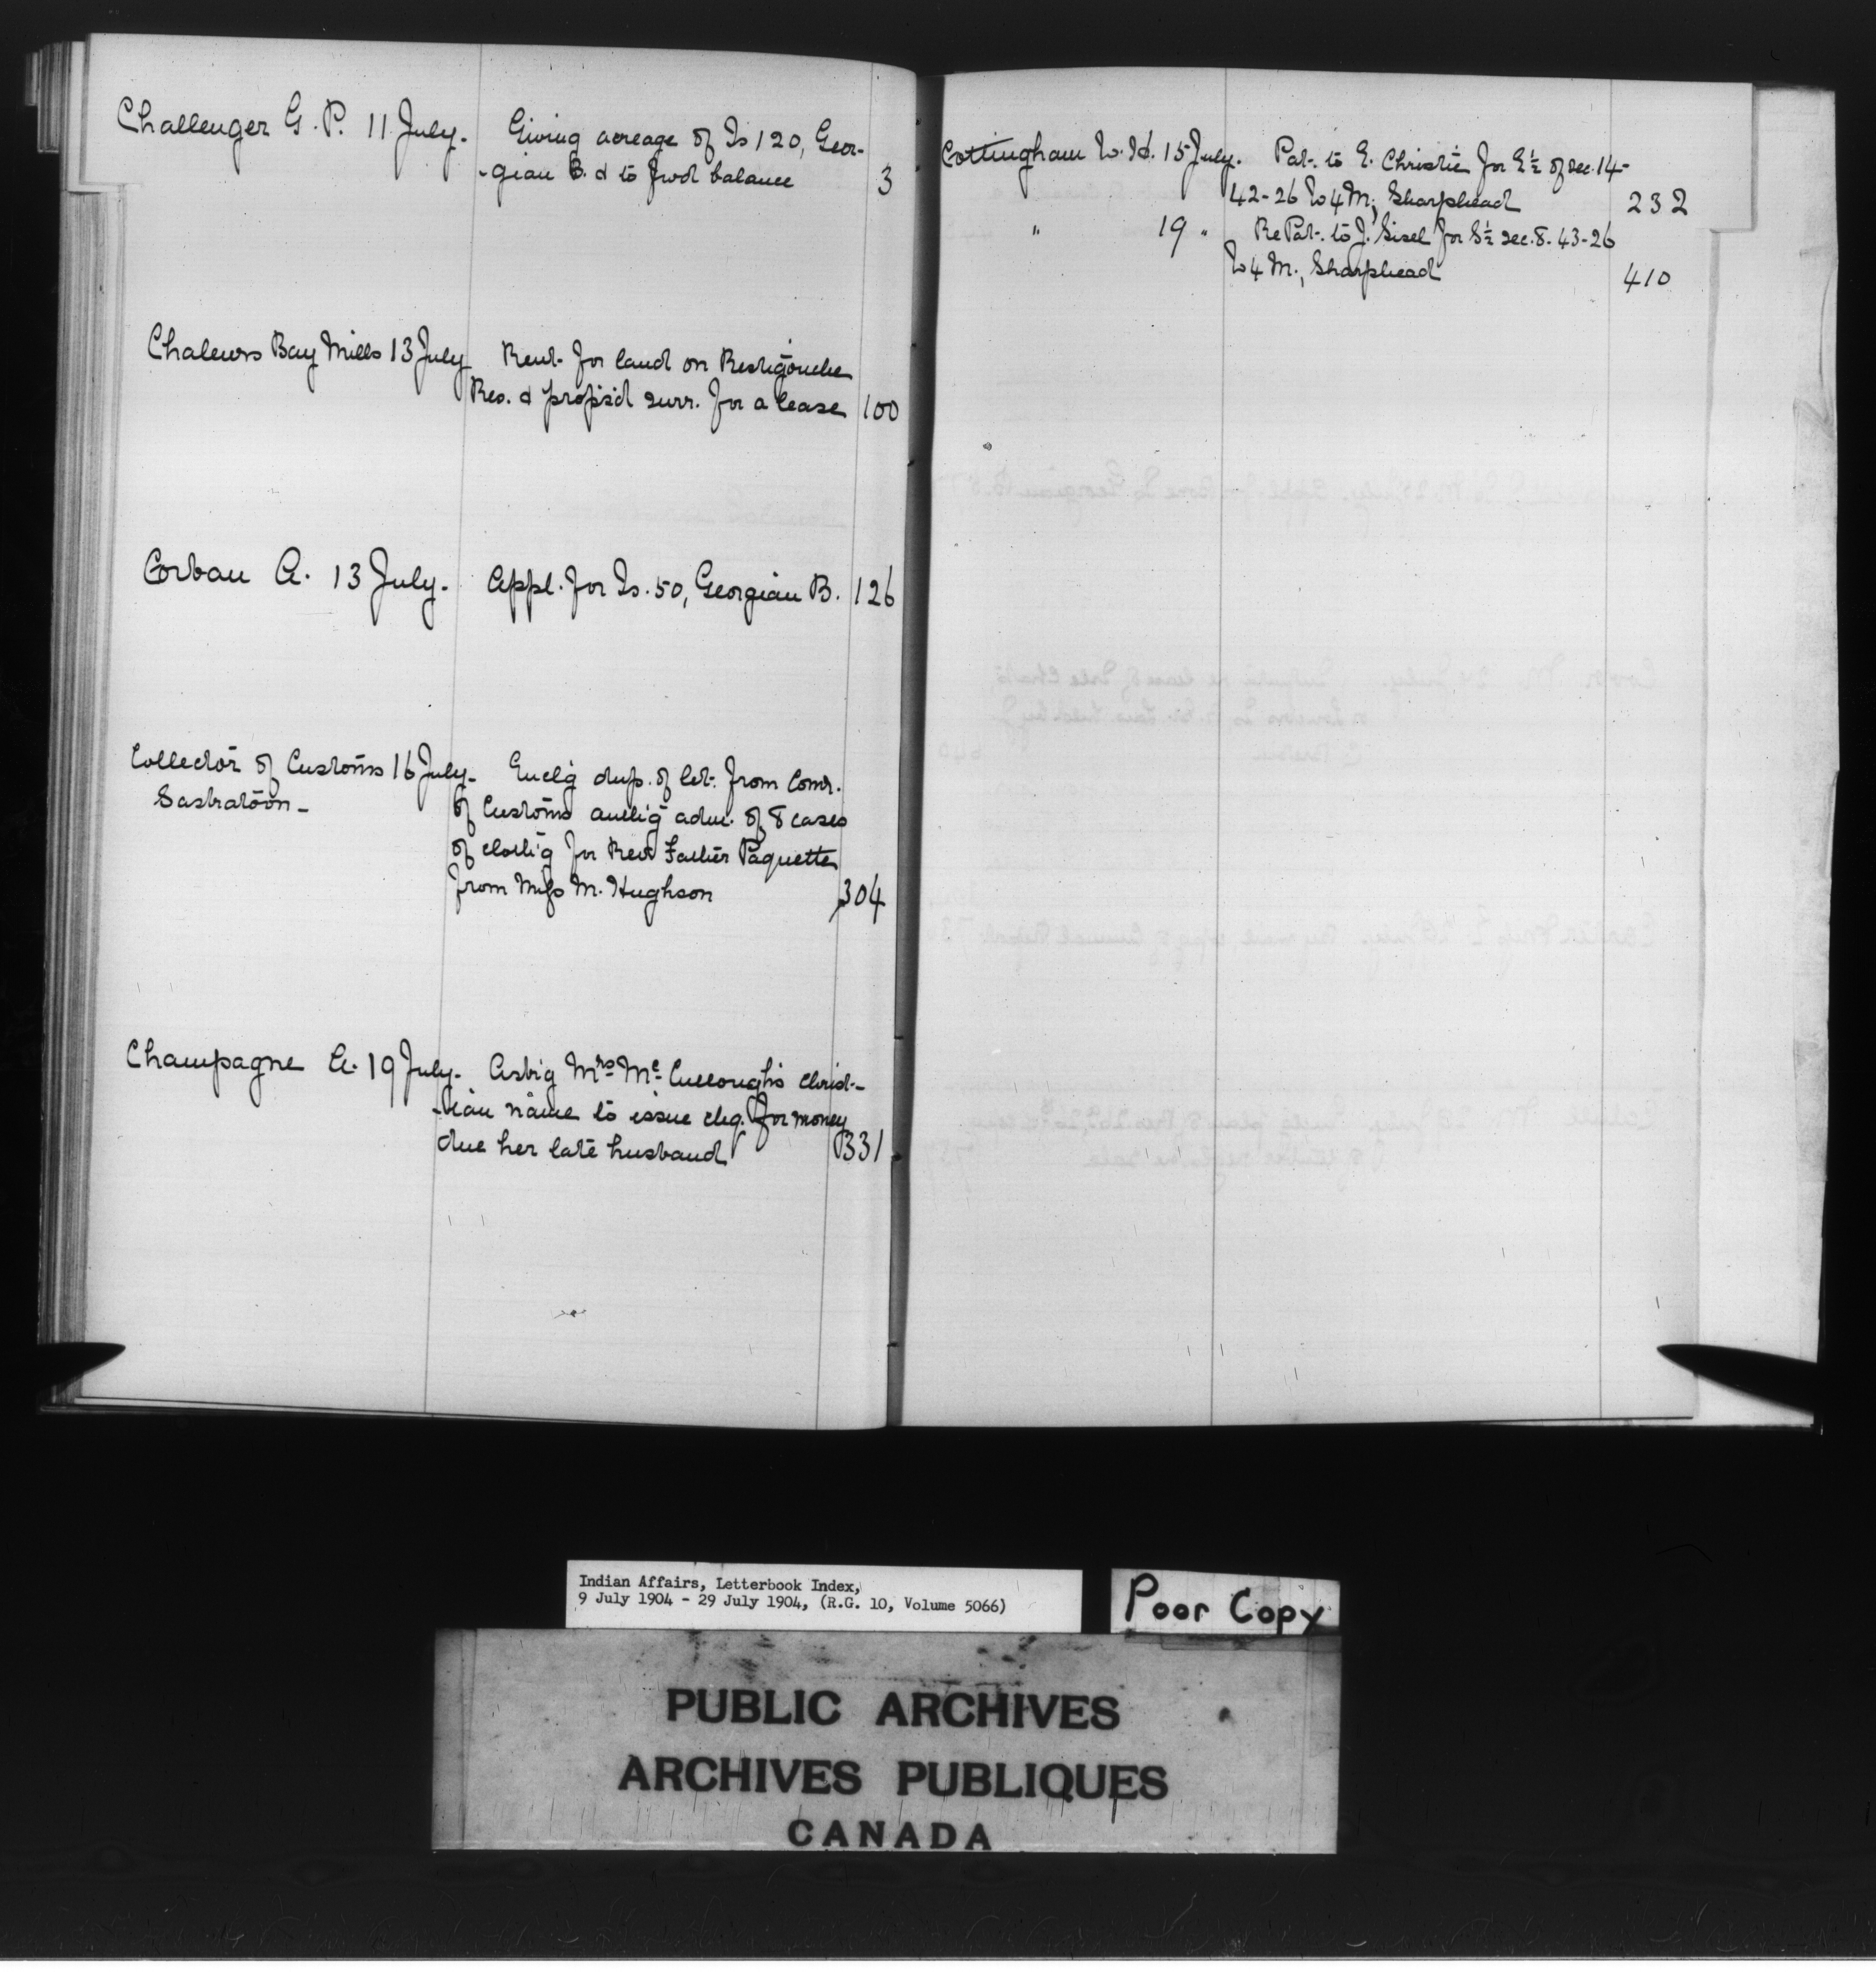 Challenger G. P. 11 July. Giving acreage of Is 120, Geor-
-gian B. & to fwd balance 3
Chaleurs Bay Mills 13 July Rent for land on Restigouche
Res. & propsd surr. for a lease 100
Corbau A. 13 July. Appl. for Is. 50, Georgian B. 126
Collector of Customs 16 July- Enclg dup. of let. from Comr.
Saskatoon- of Customs authg adm. of 8 cases
of clothg for Revd Father Paquette
from Miss M. Hughson 304
Champagne A. 19 July- Askg Mrs. Mc. Cullough's christ-
-ian name to issue chq. for money
due her late husband 331
Cottingham W. H. 15 July. Pat. to E. Christie for E½ of sec. 14-
42-26 W4M, Sharphead 232
" 19 " Re Pat. to J. Sisel for S½ sec. 8. 43-26
W4M., Sharphead 410
Indian Affairs, Letterbook Index,
9 July 1904 - 29 July 1904, (R.G. 10, Volume 5066)
Poor Copy
PUBLIC ARCHIVES
ARCHIVES PUBLIQUES
CANADA